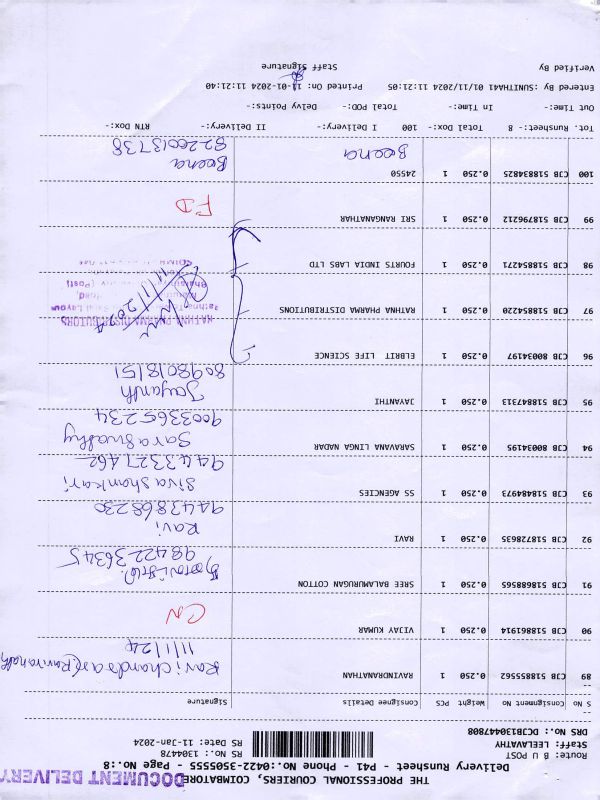 THE PROFESSIONAL COURIERS, COIMBATORE
DOCUMENT DELIVERY
Delivery Runsheet - P41 - Phone No.:0422-3505555 - Page No.:8
Route: B U POST
Staff: LEELAVATHY
RS No.: 1304478
DRS No.: DCJB13047808
RS Date: 11-Jan-2024
S No Consignment No Weight PCS Consignee Details Signature
89 CJB 518855562 0.250 1 RAVINDRANATHAN
Ravichandra (Ravinath)
11/1/24
90 CJB 518861914 0.250 1 VIJAY KUMAR
CN
91 CJB 518668568 0.250 1 SREE BALAMURUGAN COTTON
98422 36345
92 CJB 518728635 0.250 1 RAVI
Ravi
9443868230
93 CJB 518484973 0.250 1 SS AGENCIES
Siva Shankari
9443327462
94 CJB 80034195 0.250 1 SARAVANA LINGA NADAR
Saraswathy
9003365234
95 CJB 518847313 0.250 1 JAYANTHI
Jayanth
8098018151
96 CJB 80034197 0.250 1 ELBRIT LIFE SCIENCE
97 CJB 518854220 0.250 1 RATHNA PHARMA DISTRIBUTIONS
RATHNA PHARMA DISTRIBUTORS
11/1/2024
98 CJB 518854271 0.250 1 FOURTS INDIA LABS LTD
99 CJB 518796212 0.250 1 SRI RANGANATHAR
FD
100 CJB 518834825 0.250 1 24550
Beena
Beena
8220013738
Tot. Runsheet:- 8 Total Dox:- 100 I Delivery:- II Delivery:- RTN Dox:-
Out Time:- In Time:- Total POD:- Delvy Points:-
Entered By: SUNITHAA41 01/11/2024 11:21:05 Printed On: 11-01-2024 11:21:40
Verified By Staff Signature